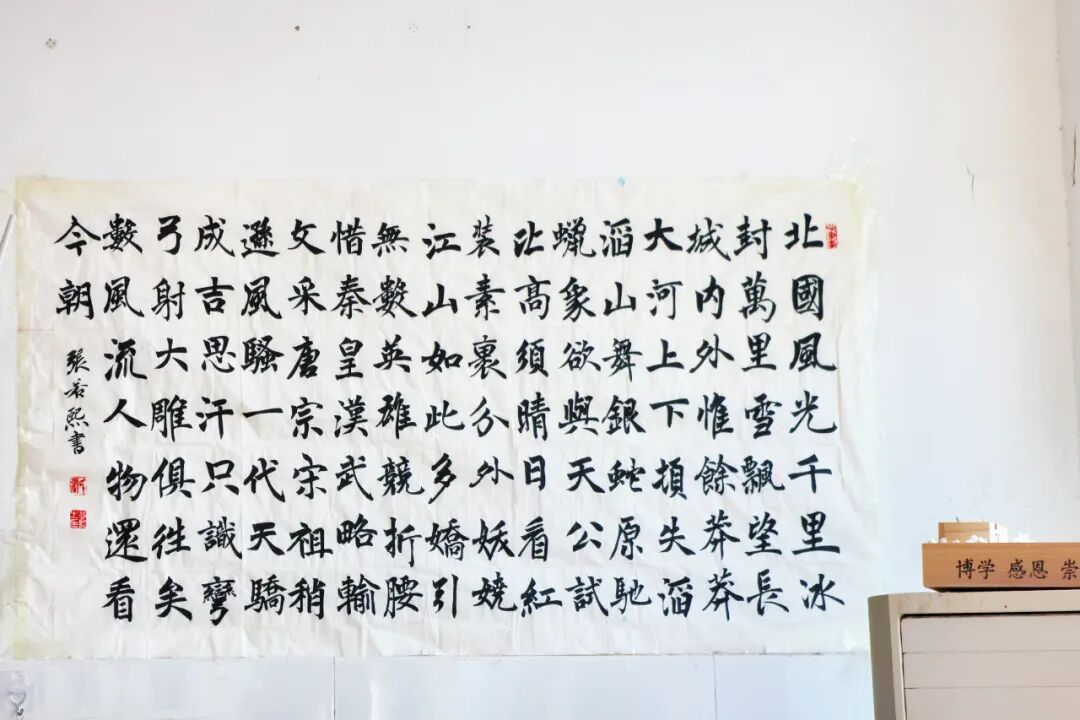 北國風光千里冰
封萬里雪飄望長
城内外惟餘莽莽
大河上下頓失滔
滔山舞銀蛇原馳
蠟象欲與天公試
比高須晴日看紅
装素裹分外妖嬈
江山如此多嬌引
無數英雄競折腰
惜秦皇漢武略輸
文采唐宗宋祖稍
遜風騷一代天驕
成吉思汗只識彎
弓射大雕俱往矣
數風流人物還看
今朝
張若熙書
博学 感恩 崇